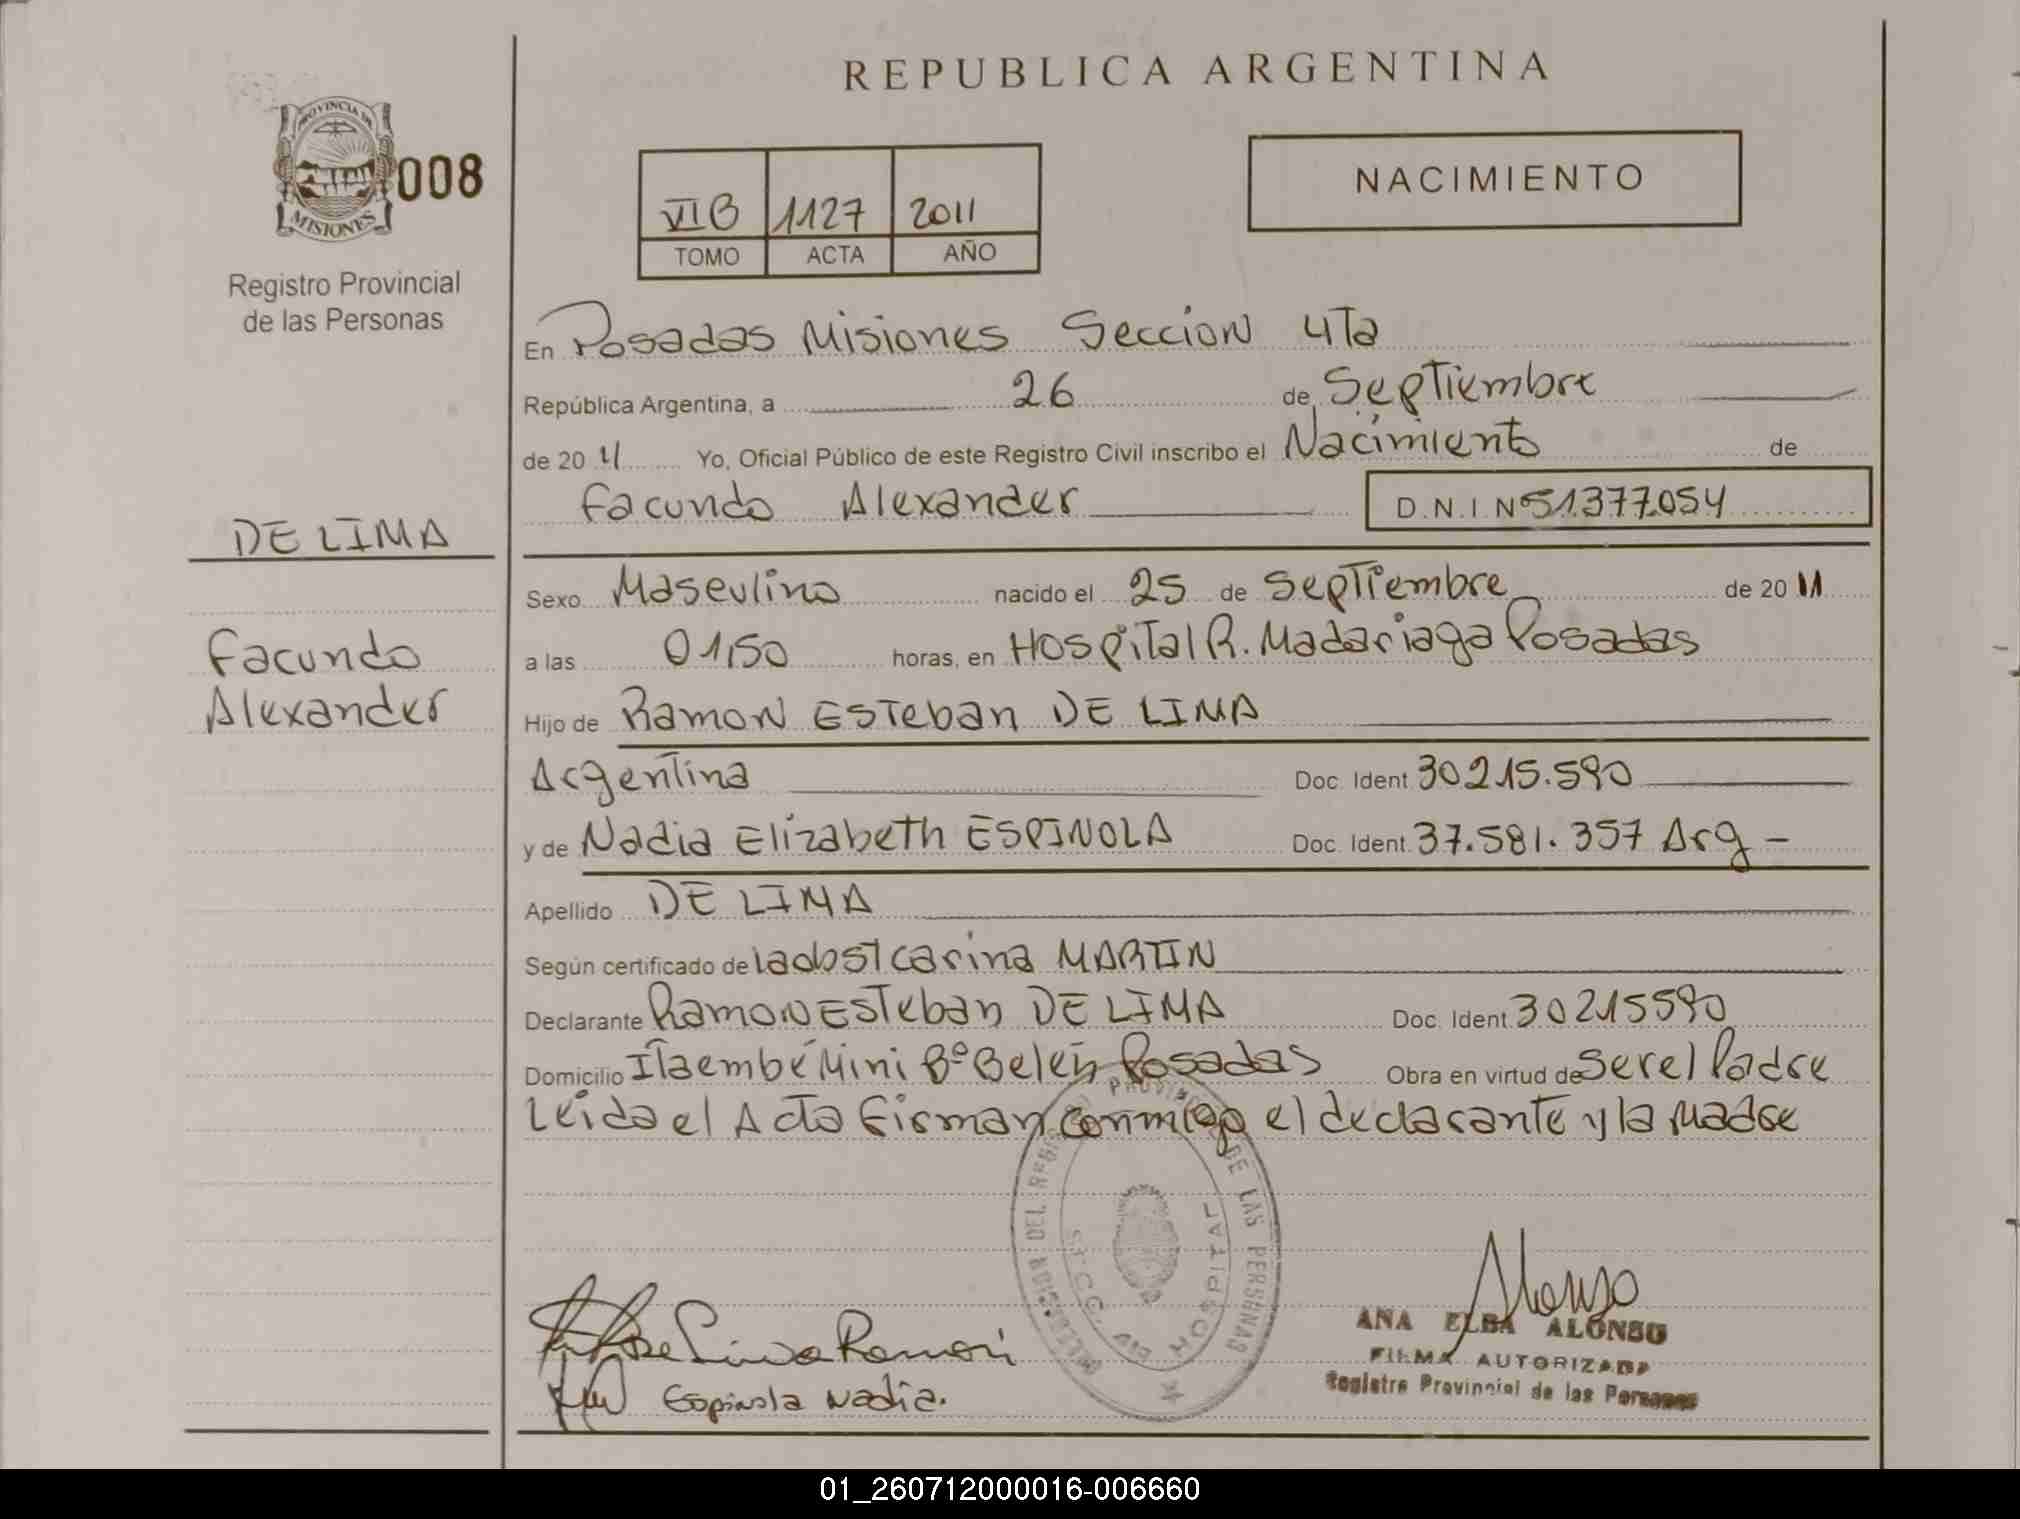 REPUBLICA ARGENTINA
PROVINCIA DE
MISIONES
008
Registro Provincial
de las Personas
VII B 1127 2011
TOMO ACTA AÑO
NACIMIENTO
En Posadas Misiones Seccion 4Ta
República Argentina, a 26 de Septiembre
de 20 11 Yo, Oficial Público de este Registro Civil inscribo el Nacimiento de
Facundo Alexander D.N.I. Nº 51.377.054
DE LIMA
Facundo
Alexander
Sexo Masculino nacido el 25 de Septiembre de 20 11
a las 01,50 horas, en Hospital R. Madariaga Posadas
Hijo de Ramon Esteban DE LIMA
Argentina Doc. Ident 30215.590
y de Nadia Elizabeth ESPINOLA Doc. Ident. 37.581.357 Arg -
Apellido DE LIMA
Según certificado de la obst Carina MARTIN
Declarante Ramon Esteban DE LIMA Doc. Ident. 30215590
Domicilio Itaembé Mini Bº Belén Posadas Obra en virtud de ser el Padre
Leida el Acta firman conmigo el declarante y la Madre
DEL REGISTRO PROVINCIAL DE LAS PERSONAS
SECC. HOSPITAL
De Lima Ramon
Espinola Nadia.
Alonso
ANA ELBA ALONSO
FIRMA AUTORIZADA
Registro Provincial de las Personas
01_260712000016-006660